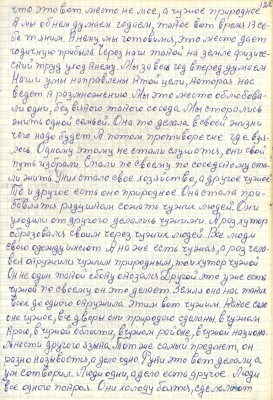 122
что это вот место не мое, а чужое природное
А мы об нем думаем годоем, такое вот время Я се-
бе тянем. А нему мы готовимся, это место дает
годичную прибыль через наш такой на земле физиче-
ский труд, уход Я нему. Мы за вод год вперед думаем
Наши умы направлены Я той цели, которая нас
ведет Я размножению. Мы это место облюбова-
ли одни, без всякого такого соседа. Мы старались
жить одной семьей. Она то делала в своей жизни
чего надо будет. А потом противоречие где взя-
лось. Одному этому не стали слушатся, они свой
путь избрали. Стали по своему по соседскому ста-
ли жить. У них стало свое хозяйство, а другое чужое
То и другое есть оно природное. Она стала при-
бавлять раздушать сонать чужих людей. Они
уходили от другого делались чужими. А раз хутор
образовался своим через чужих людей. Все люди
свою одежду имеют. А на же есть чужая, а раз чело-
век окружился чужим природным, то и хутор чужой
Он не один такой сбоку оказался Другой это уже есть
чужой по своему он это делает. Земля она нас таких
всех до одного окружила этим вот чужим. Какое село
оно чужое, все дворы они природою сделаны в чужом
крае, в чужой области, в чужом районе, в чужой национа-
льности другого языка. Тот же самый предмет, он
разно называется, а дело одно. Руки это вот делали, а
ум сотворил. Люди одни, а дело есть другое. Люди
все одного покроя. Они холоду боятся, сделали от